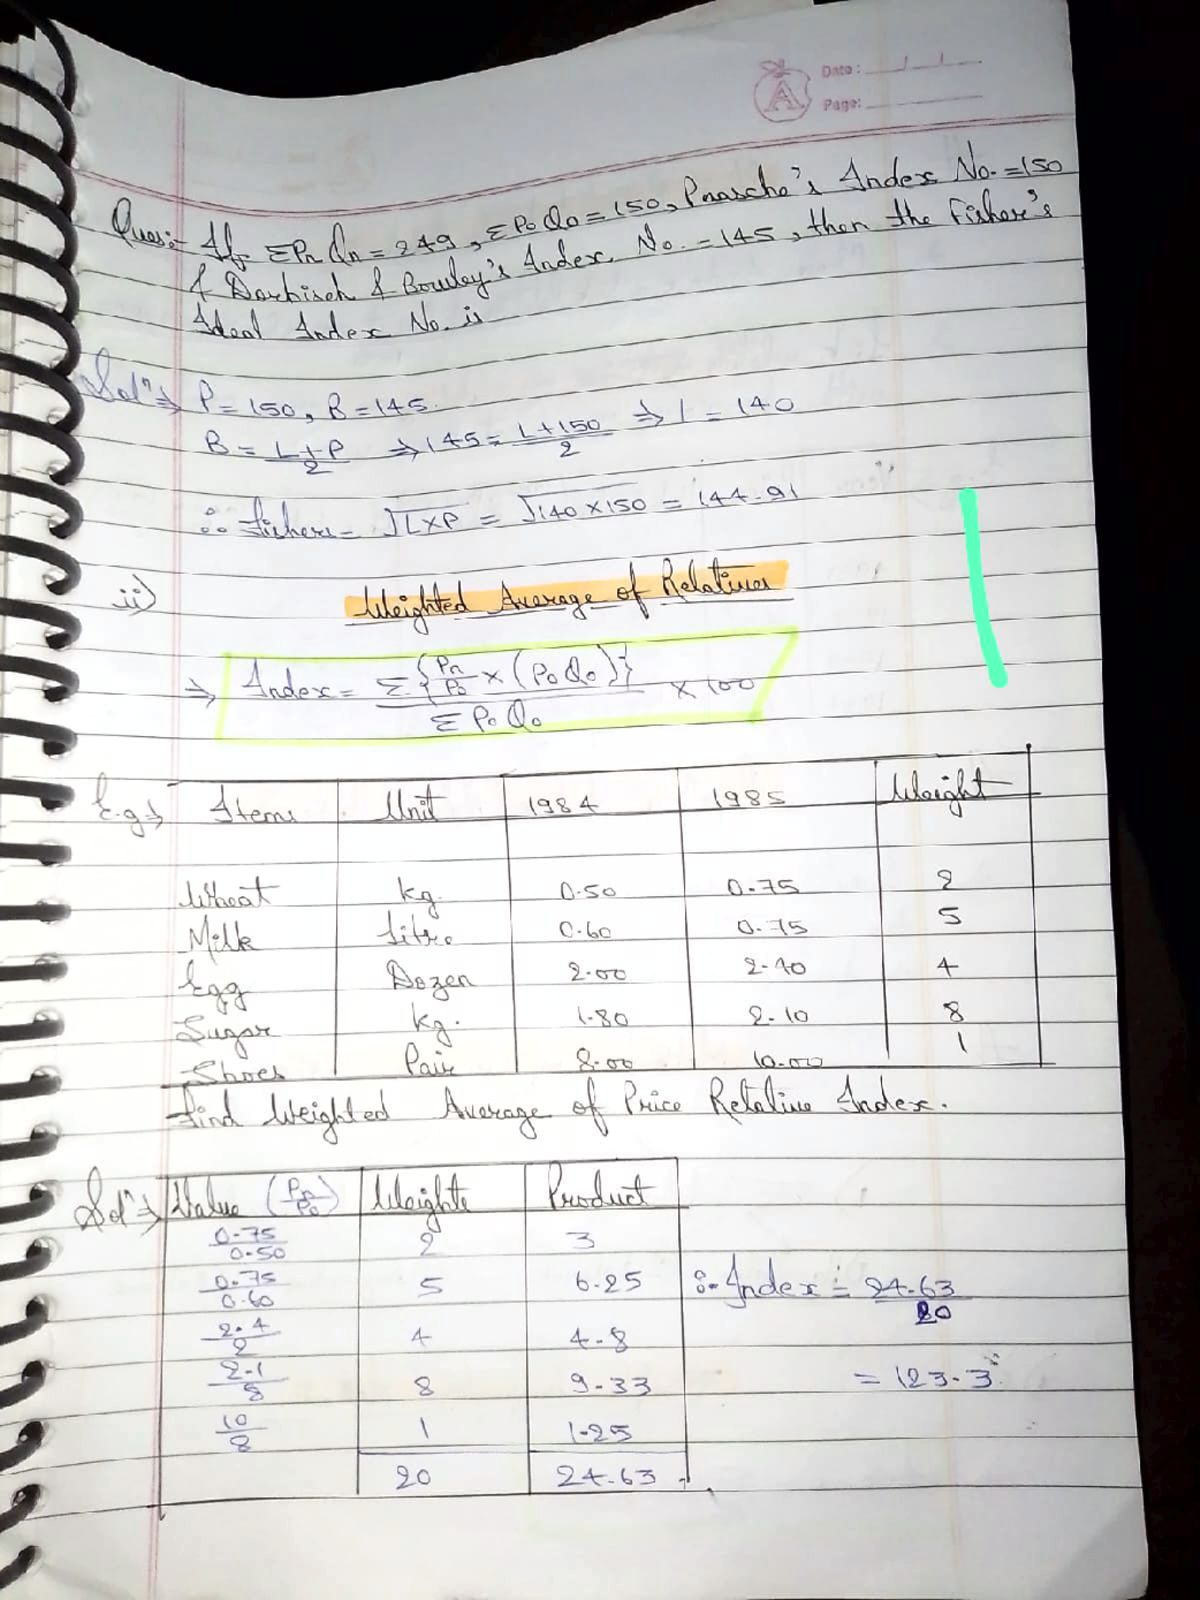 Date:
Page:
Ques:- If ΣPn Qn = 249, ΣP₀Q₀ = 150, Paasche's Index No. = 150
& Dorbisch & Bowley's Index. No. = 145, then the Fisher's
Ideal Index No. is
Solⁿ⇒ P = 150, B = 145.
B = (L+P)/2 ⇒ 145 = (L+150)/2 ⇒ L = 140
∴ Fishers = √(L×P) = √(140×150) = 144.91
ii) Weighted Average of Relatives
⇒ Index = Σ{Pn/P₀ × (P₀Q₀)}/ΣP₀Q₀ × 100
E.g⇒ Items Unit 1984 1985 Weight
Wheat kg 0.50 0.75 2
Milk Litre 0.60 0.75 5
Egg Dozen 2.00 2.40 4
Sugar kg. 1.80 2.10 8
Shoes Pair 8.00 10.00 1
Find Weighted Average of Price Relative Index.
Solⁿ⇒ Value (Pn/P₀) Weights Product
0.75/0.50 2 3
0.75/0.60 5 6.25 ∴ Index = 24.63/20
2.4/2 4 4.8
2.1/8 8 9.33 = 123.3
10/8 1 1.25
20 24.63